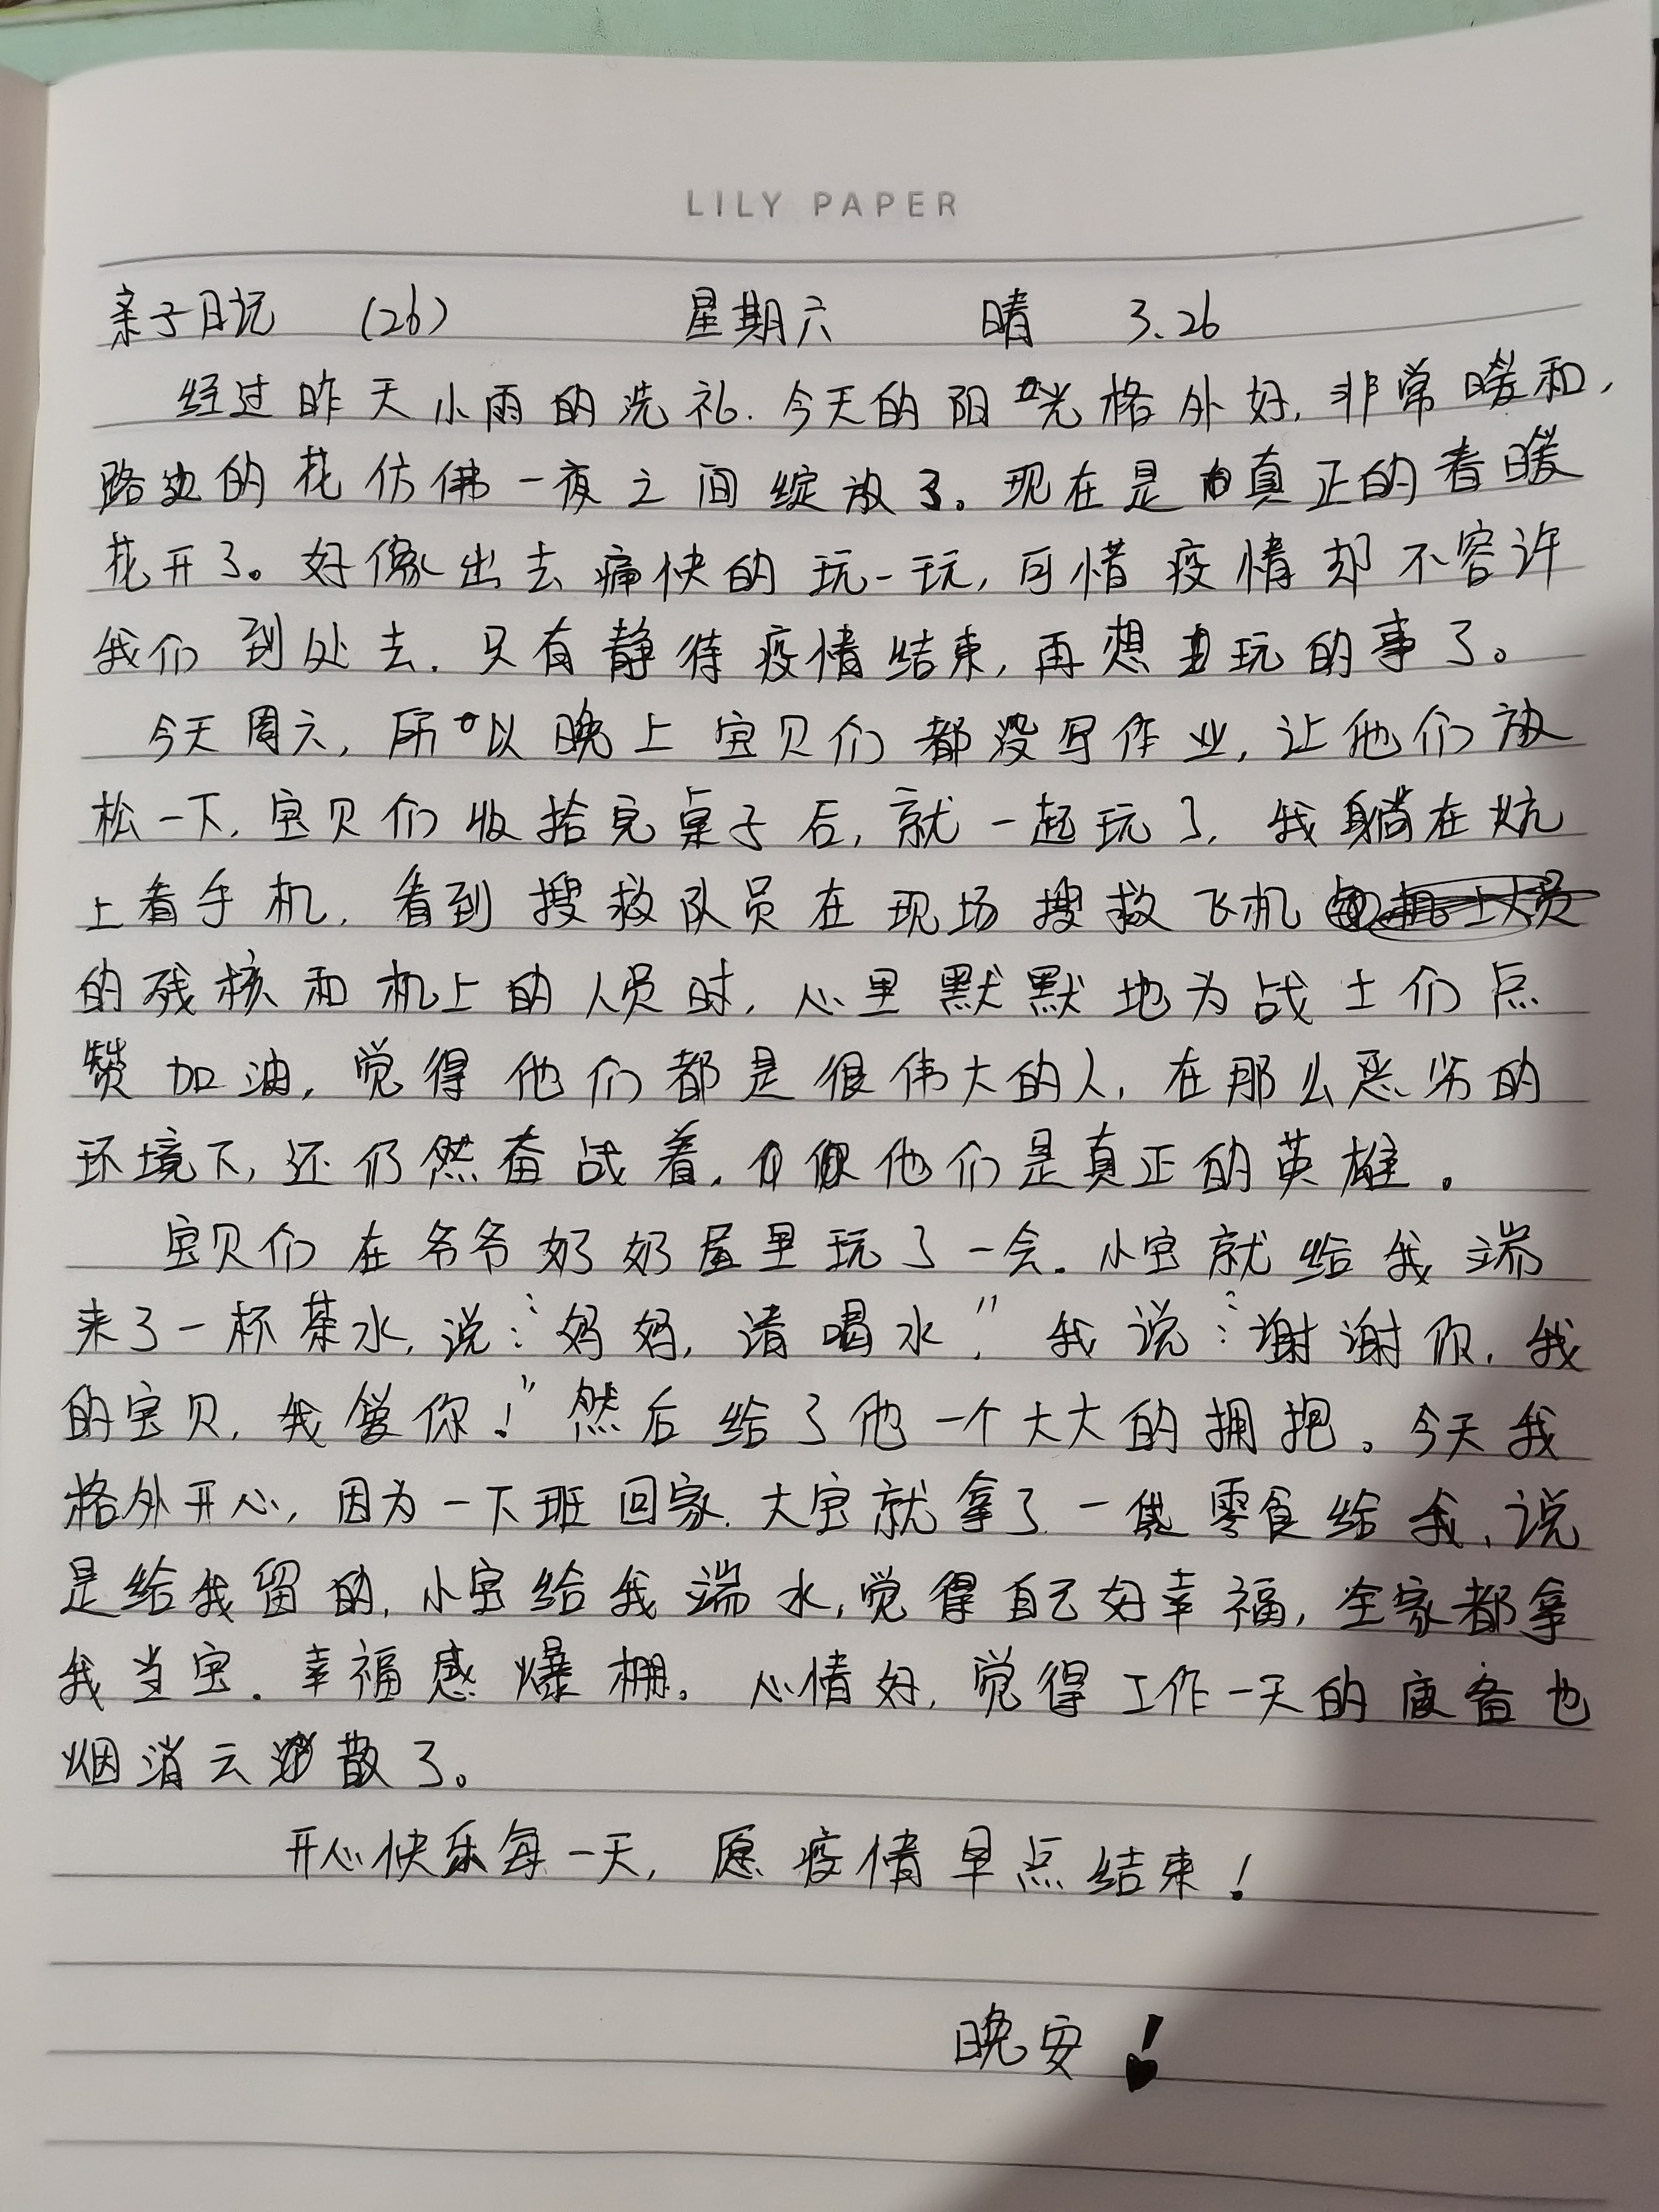 LILY PAPER
亲子日记 (26) 星期六 晴 3.26
经过昨天小雨的洗礼.今天的阳光格外好,非常暖和,
路边的花仿佛一夜之间绽放了。现在是真正的春暖
花开了。好像出去痛快的玩一玩,可惜疫情却不容许
我们到处去.只有静待疫情结束,再想玩的事了。
今天周六,所以晚上宝贝们都没写作业,让他们放
松一下.宝贝们收拾完桌子后,就一起玩了,我躺在炕
上看手机,看到搜救队员在现场搜救飞机
的残核和机上的人员时,心里默默地为战士们点
赞加油,觉得他们都是很伟大的人,在那么恶劣的
环境下,还仍然奋战着.他们是真正的英雄。
宝贝们在爷爷奶奶屋里玩了一会.小宝就给我端
来了一杯茶水,说:“妈妈,请喝水”,我说:“谢谢你,我
的宝贝,我爱你!”然后给了他一个大大的拥抱。今天我
格外开心,因为一下班回家.大宝就拿了一袋零食给我,说
是给我留的,小宝给我端水,觉得自己好幸福,全家都拿
我当宝.幸福感爆棚。心情好,觉得工作一天的疲惫也
烟消云散了。
开心快乐每一天,愿疫情早点结束!
晚安!